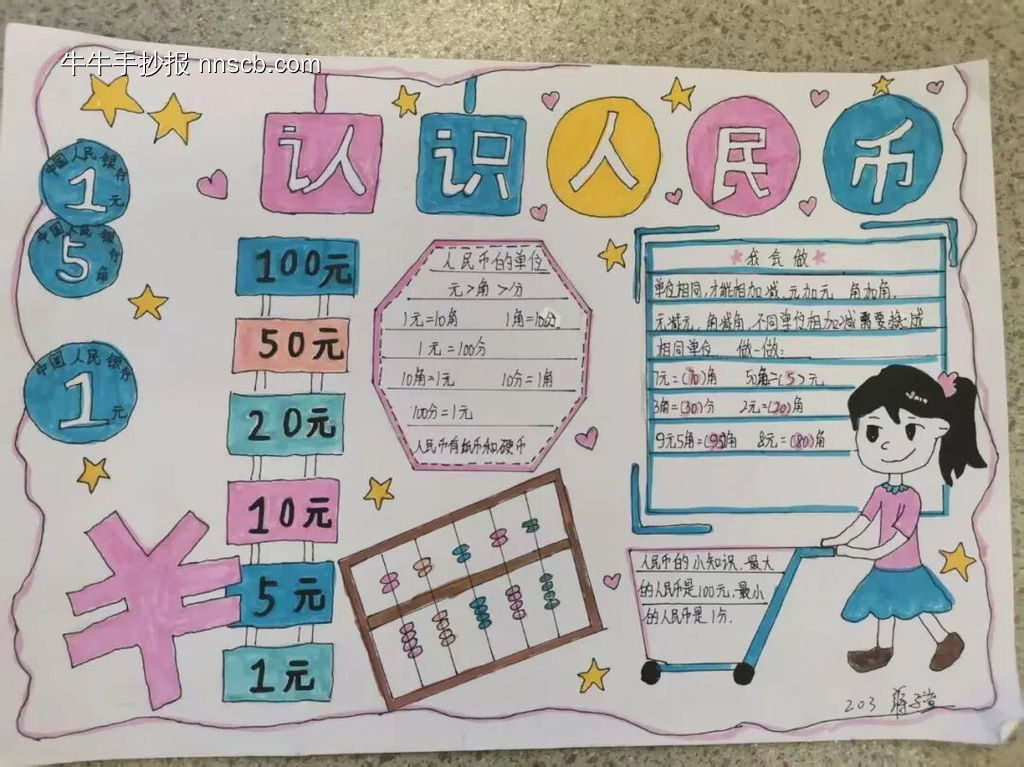 牛牛手抄报 nnscb.com
认识人民币
中国人民银行
1元
中国人民银行
5角
中国人民银行
1元
100元
50元
20元
10元
5元
1元
¥
人民币的单位
元>角>分
1元=10角 1角=10分
1元=100分
10角=1元 10分=1角
100分=1元
人民币有纸币和硬币
我会做
单位相同,才能相加减,元加元 角加角,
元减元,角减角,不同单位相加减需要换成
相同单位 做一做:
1元=(10)角 50角=(5)元
3角=(30)分 2元=(20)角
9元5角=(95)角 8元=(80)角
人民币的小知识,最大
的人民币是100元,最小
的人民币是1分.
203